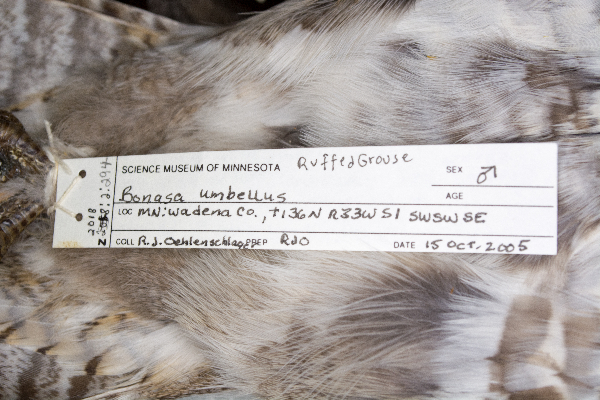 SCIENCE MUSEUM OF MINNESOTA Ruffed Grouse SEX ♂
Bonasa umbellus AGE
LOC MN: Wadena Co., T136N R33W S1 SWSWSE
COLL R.J. Oehlenschlager PREP RJO DATE 15 Oct. 2005
2018
:2:294